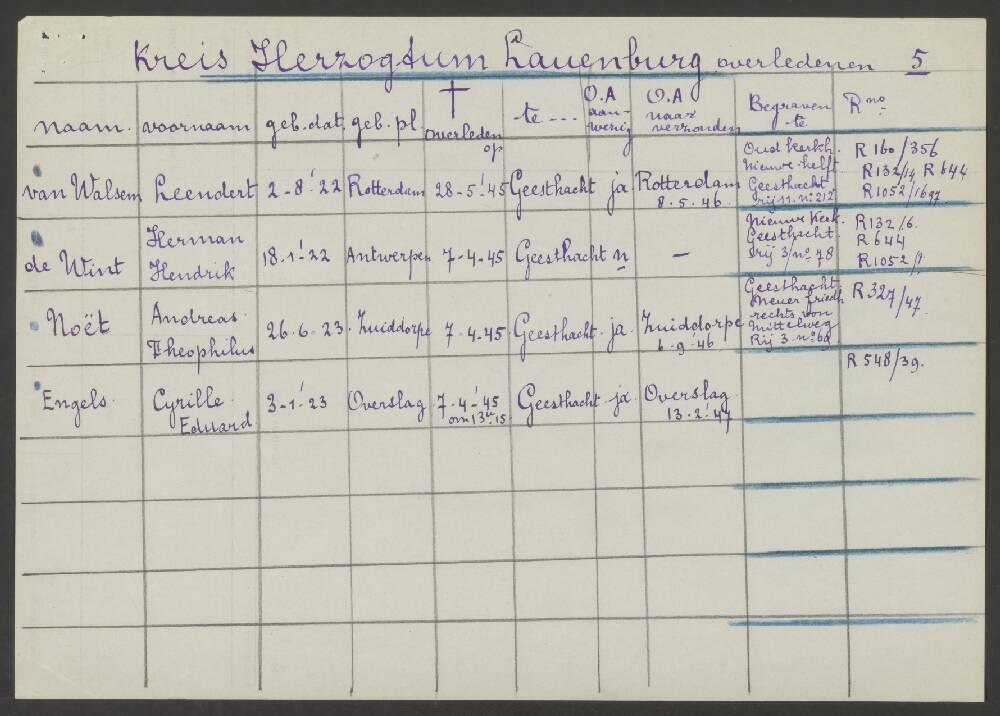 Kreis Herzogtum Lauenburg overledenen 5
naam. voornaam geb.dat. geb.pl. † overleden op te --- O.A aan-wezig O.A naar verzonden Begraven te R no.
van Walsem Leendert 2-8-'22 Rotterdam 28-5-'45 Geesthacht ja Rotterdam 8.5.46.
Oud Kerkh.
Nieuwe helft
Geesthacht
Rij 11. no 212
R 160/356
R132/14 R 644
R1052/1697
de Wint Herman Hendrik 18-1-'22 Antwerpen 7-4-45 Geesthacht n —
Nieuwe Kerk.
Geesthacht.
Rij 3/no 78
R132/6.
R 644
R1052/
Noët Andreas Theophilus 26.6.23. Zuiddorpe 7.4.45. Geesthacht ja. Zuiddorpe 6.9.46
Geesthacht.
Neuer friedh
rechts von
Mittelweg
Rij 3. no 69
R 327/47.
Engels. Cyrille Eduard 3-1-'23 Overslag 7-4-'45 om 13u15 Geesthacht ja. Overslag 13.2.'47
R 548/39.